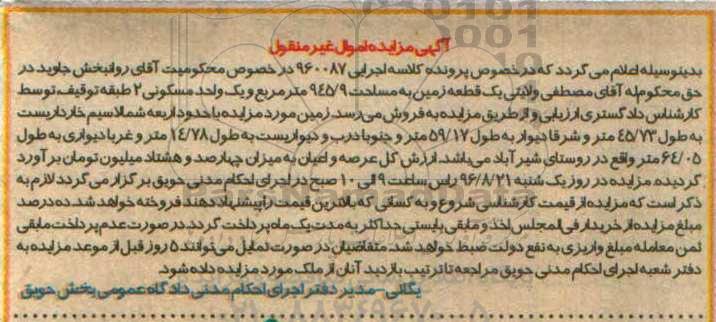 آگهی مزایده اموال غیر منقول
بدینوسیله اعلام می گردد که در خصوص پرونده کلاسه اجرایی ۹۶۰۰۸۷ در خصوص محکومیت آقای روانبخش جاوید در
حق محکوم له آقای مصطفی ولایتی یک قطعه زمین به مساحت ۹۴۵/۹ متر مربع و یک واحد مسکونی ۲ طبقه توقیف، توسط
کارشناس دادگستری ارزیابی و از طریق مزایده به فروش می رسد. زمین مورد مزایده با حدود اربعه شمالا سیم خارداریست
به طول ۴۵/۷۳ متر و شرقا دیوار به طول ۵۹/۱۷ متر و جنوبا درب و دیواریست به طول ۱۴/۷۸ متر و غربا دیواری به طول
۶۴/۰۵ متر واقع در روستای شیر آباد می باشد. ارزش کل عرصه و اعیان به میزان چهارصد و هشتاد میلیون تومان بر آورد
گردیده. مزایده در روز یک شنبه ۹۶/۸/۲۱ راس ساعت ۹ الی ۱۰ صبح در اجرای احکام مدنی حویق بر گزار می گردد لازم به
ذکر است که مزایده از قیمت کارشناسی شروع و به کسانی که بالاترین قیمت را پیشنهاد دهند فروخته خواهد شد. ده درصد
مبلغ مزایده از خریدار فی المجلس اخذ و مابقی بایستی حداکثر به مدت یک ماه پرداخت گردد. در صورت عدم پرداخت مابقی
ثمن معامله مبلغ واریزی به نفع دولت ضبط خواهد شد. متقاضیان در صورت تمایل می توانند ۵ روز قبل از موعد مزایده به
دفتر شعبه اجرای احکام مدنی حویق مراجعه تا ترتیب بازدید آنان از ملک مورد مزایده داده شود.
یگانی - مدیر دفتر اجرای احکام مدنی دادگاه عمومی بخش حویق